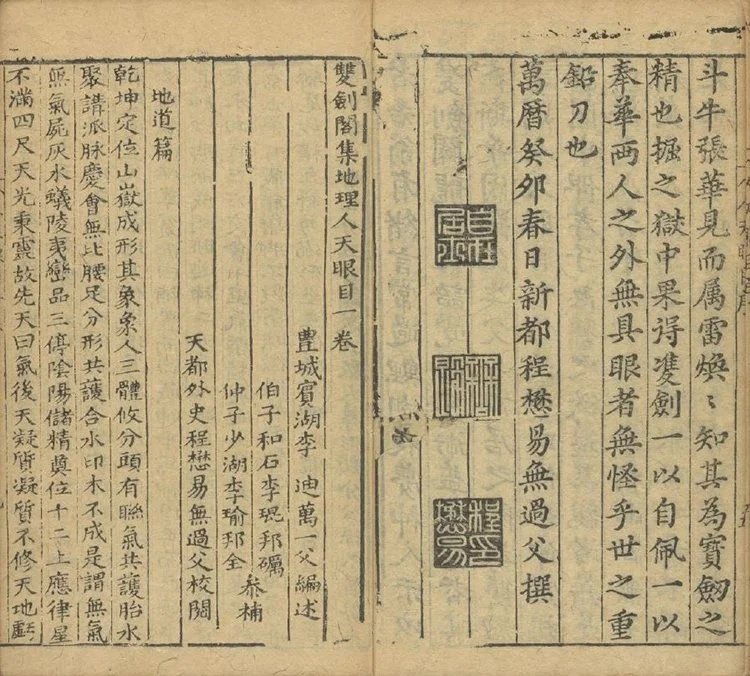 斗牛張華見而属雷煥〻知其為寳劒之
精也掘之獄中果得雙劍一以自佩一以
奉華两人之外無具眼者無怪乎世之重
鉛刀也
萬曆癸卯春日新都程懋易無過父撰
程懋易印
雙劍閣集地理人天眼目一卷
豊城賓湖李 迪萬一父編述
伯子和石李琨邦礪
仲子少湖李瑜邦全
叅補
天都外史程懋易無過父校閱
地道篇
乾坤定位山嶽成形其象象人三體攸分頭有聮氣共護胎水
聚講派脉慶會無比腰足分形共護合水印木不成是謂無氣
無氣屍灰水蟻陵夷巒品三停陰陽儲精奠位十二上應律星
不满四尺天光秉靈故先天曰氣後天凝質凝質不修天地虧